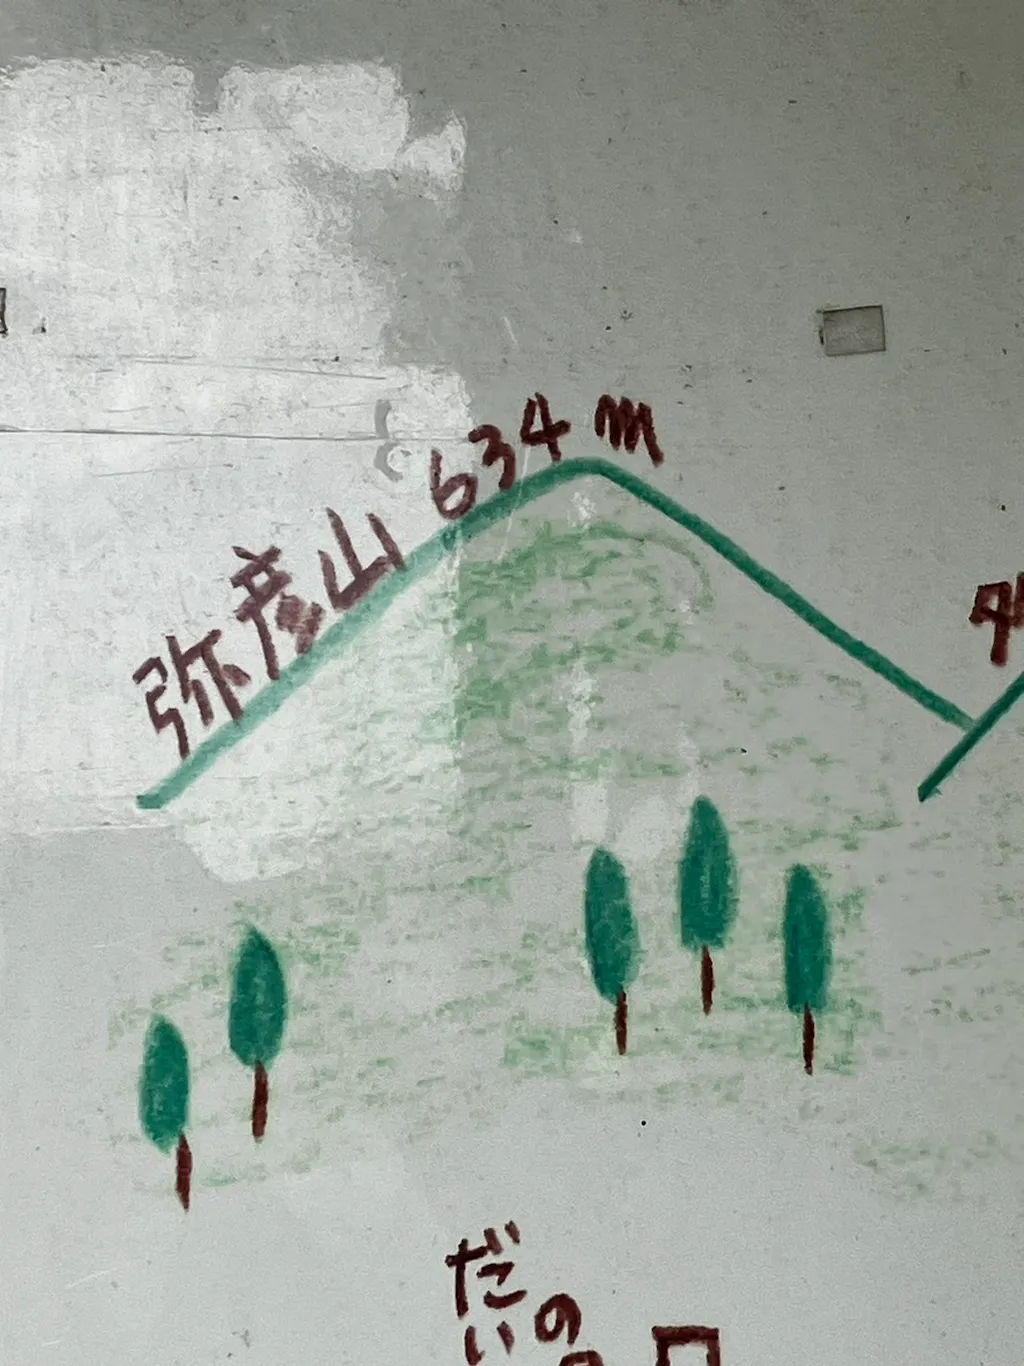 弥彦山 634m
だいの